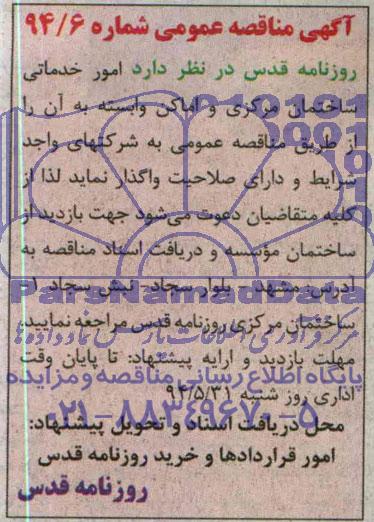 آگهی مناقصه عمومی شماره ۹۴/۶
روزنامه قدس در نظر دارد امور خدماتی
ساختمان مرکزی و اماکن وابسته به آن را
از طریق مناقصه عمومی به شرکتهای واجد
شرایط و دارای صلاحیت واگذار نماید لذا از
کلیه متقاضیان دعوت می‌شود جهت بازدید از
ساختمان مؤسسه و دریافت اسناد مناقصه به
آدرس: مشهد - بلوار سجاد - نبش سجاد ۱ -
ParsNamadData
ساختمان مرکزی روزنامه قدس مراجعه نمایید.
مهلت بازدید و ارایه پیشنهاد: تا پایان وقت
پایگاه اطلاع رسانی مناقصه و مزایده
اداری روز شنبه ۹۴/۵/۳۱
۰۲۱-۸۸۳۴۹۶۷۰-۵
محل دریافت اسناد و تحویل پیشنهاد:
امور قراردادها و خرید روزنامه قدس
روزنامه قدس